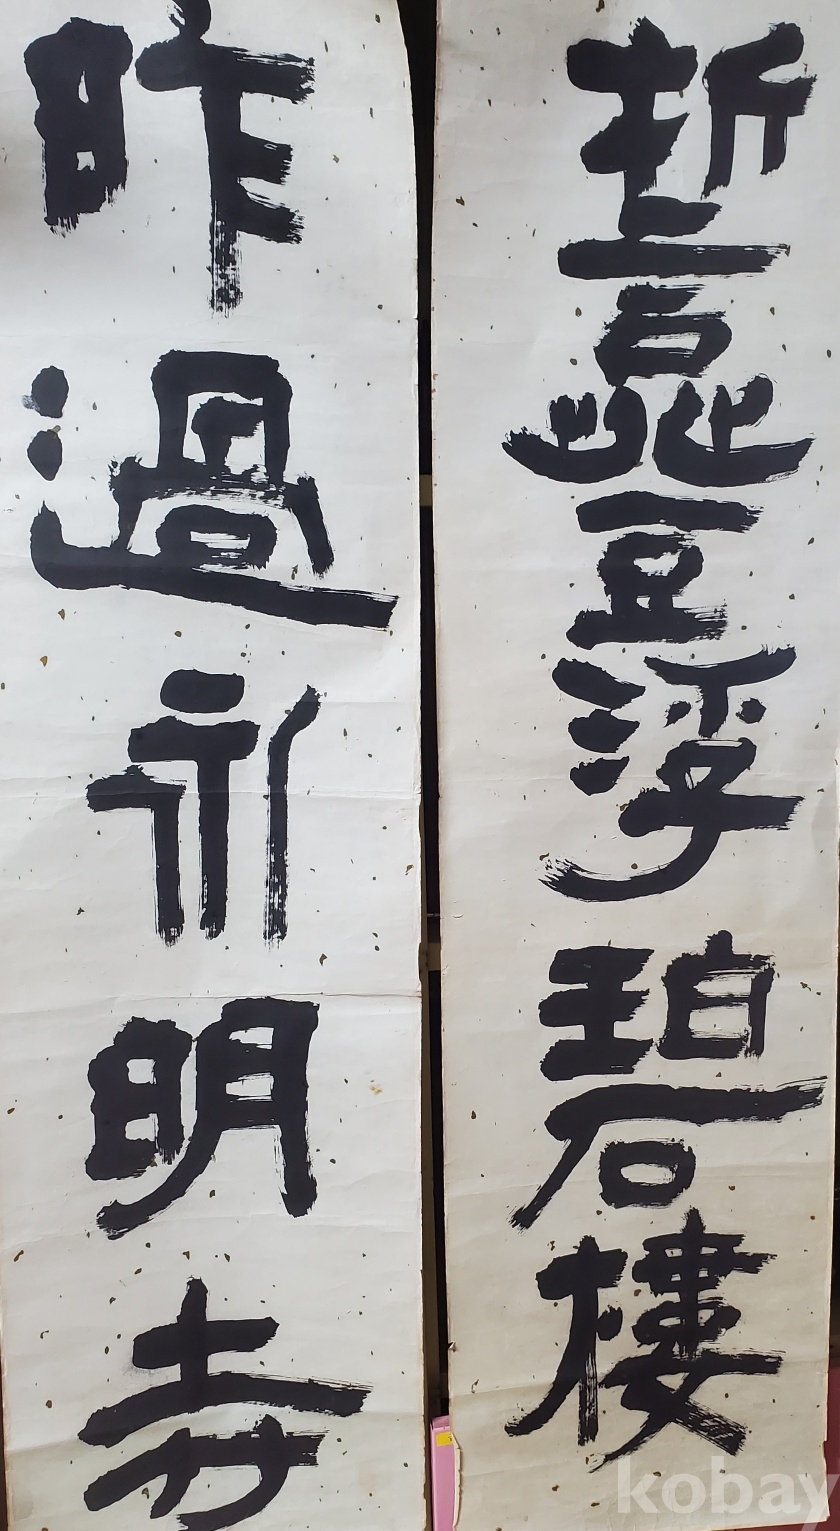 昨過永明寺
暫登浮碧樓
kobay